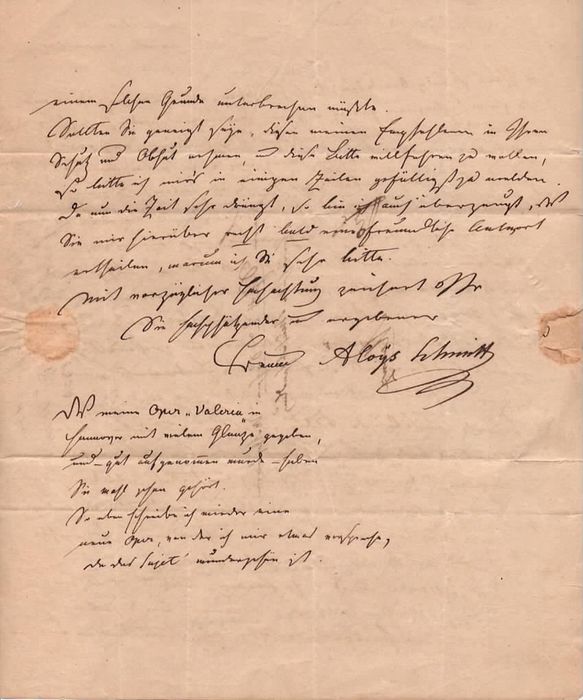 einem solchen Grunde unterbrechen müßte.
Sollten Sie geneigt seyn, diesen meinen Empfohlenen in Ihren
Schutz und Obhut nehmen, und diese Bitte willfahren zu wollen,
so bitte ich mir's in einigen Zeilen gefälligst zu melden.
Da nun die Zeit sehr drängt, so bin ich auch überzeugt, daß
Sie mir hierüber recht bald eine freundliche Antwort
ertheilen, warum ich Sie sehr bitte.
Mit vorzüglicher Hochachtung zeichnet
Sie hochschätzender und ergebener
Freund Aloÿs Schmitt
Daß meine Oper „Valeria" in
Hannover mit vielem Glanze gegeben,
und gut aufgenommen wurde – haben
Sie wohl schon gehört.
So eben schreibe ich wieder eine
neue Oper, von der ich mir etwas verspreche,
da das Sujet wunderschön ist.